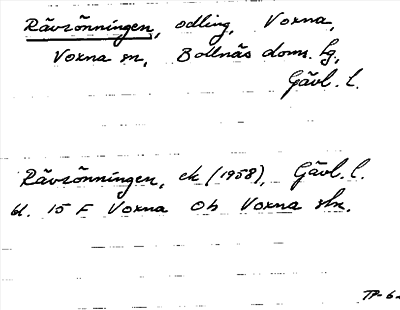 Rävrönningen, odling, Voxna,
Voxna sn, Bollnäs doms. hg,
Gävl. l.
Rävrönningen, ek (1958), Gävl. l.
bl. 15 F Voxna Ob Voxna skn.
TP-6-